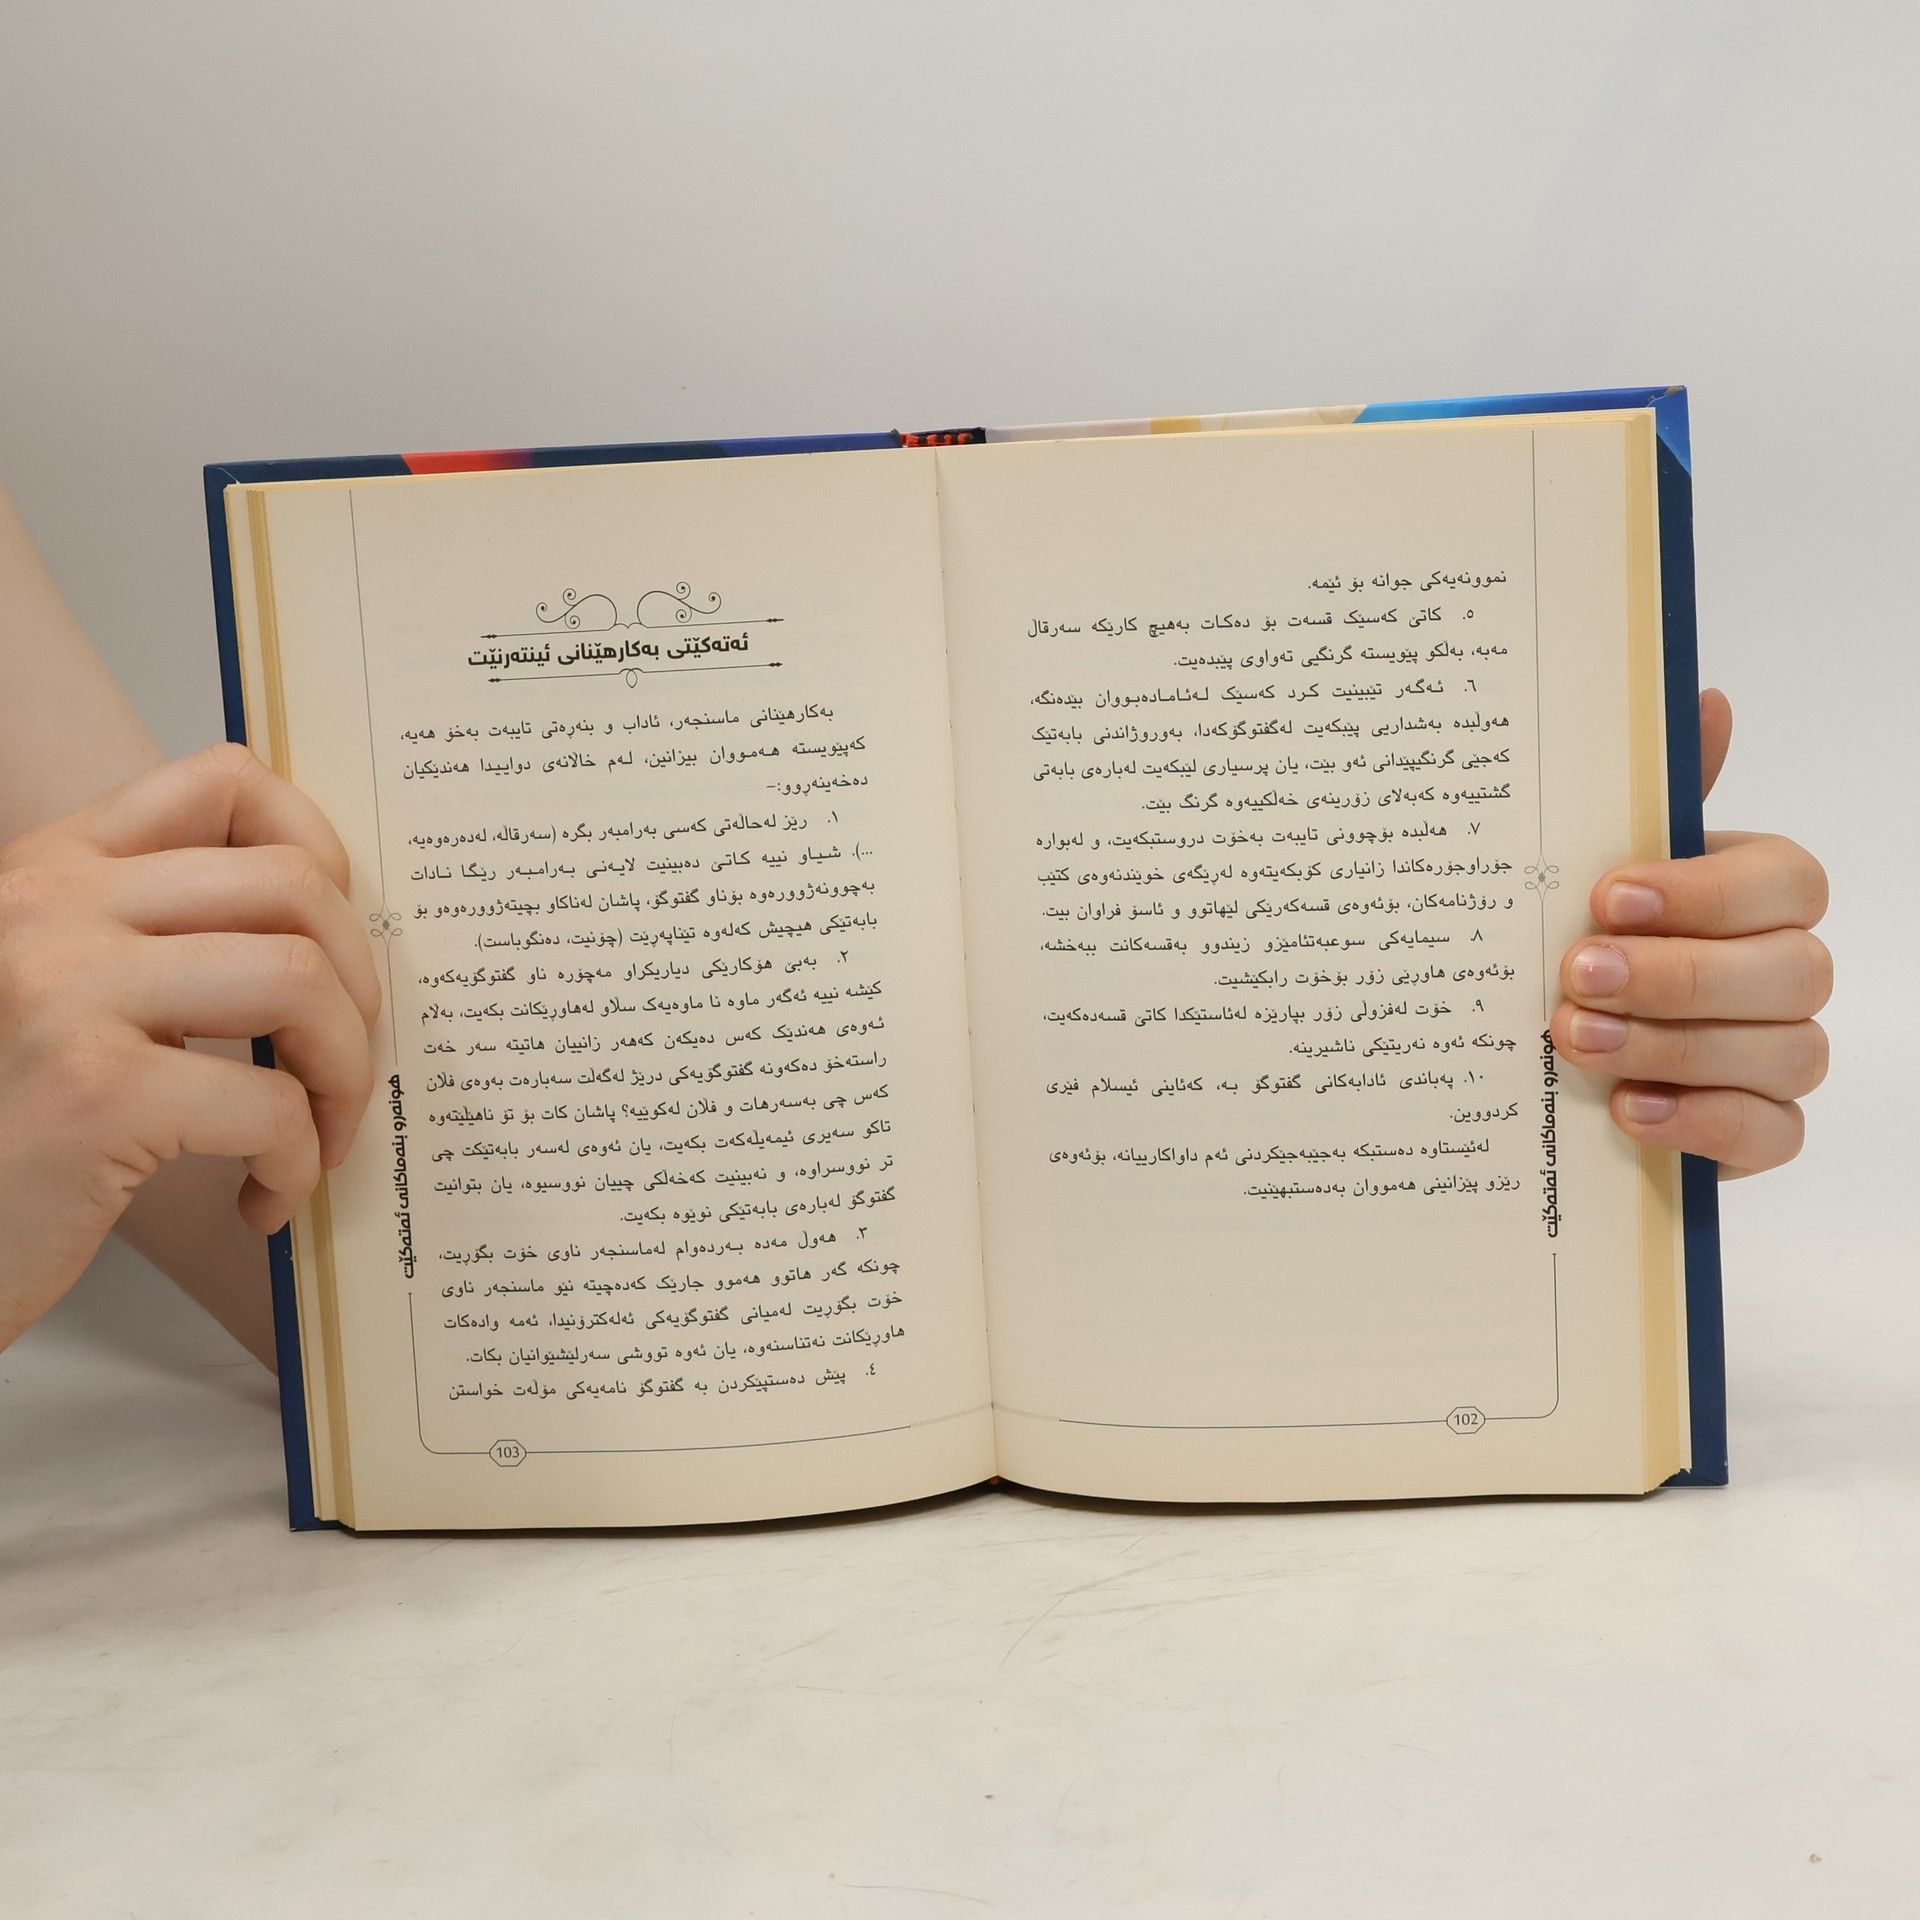 نموونەیەکی جوانە بۆ ئێمە.
٥. کاتێ کەسێک قسەت بۆ دەکات بەهیچ کارێکە سەرقاڵ
مەبە، بەڵکو پێویستە گرنگیی تەواوی پێبدەیت.
٦. ئەگەر تێبینیت کرد کەسێک لەئامادەبووان بێدەنگە،
هەوڵبدە بەشداریی پێبکەیت لەگفتوگۆکەدا، بەوروژاندنی بابەتێک
کەجێی گرنگیپێدانی ئەو بێت، یان پرسیاری لێبکەیت لەبارەی بابەتی
گشتییەوە کەبەلای زۆرینەی خەڵکییەوە گرنگ بێت.
٧. هەڵبدە بۆچوونی تایبەت بەخۆت دروستبکەیت، و لەبوارە
جۆراوجۆرەکاندا زانیاری کۆبکەیتەوە لەڕێگەی خوێندنەوەی کتێب
و رۆژنامەکان، بۆئەوەی قسەکەرێکی لێهاتوو و ئاسۆ فراوان بیت.
٨. سیمایەکی سوعبەتئامێزو زیندوو بەقسەکانت ببەخشە،
بۆئەوەی هاوڕێی زۆر بۆخۆت رابکێشیت.
٩. خۆت لەفزوڵی زۆر بپارێزە لەئاستێکدا کاتێ قسەدەکەیت،
چونکە ئەوە نەریتێکی ناشیرینە.
١٠. پەباندی ئادابەکانی گفتوگۆ بە، کەئاینی ئیسلام فێری
کردووین.
لەئێستاوە دەستبکە بەجێبەجێکردنی ئەم داواکارییانە، بۆئەوەی
رێزو پێزانینی هەمووان بەدەستبهێنیت.
هونەرو بنەماکانی ئەتەکێت
102
ئەتەکێتی بەکارهێنانی ئینتەرنێت
بەکارهێنانی ماسنجەر، ئاداب و بنەڕەتی تایبەت بەخۆ هەیە،
کەپێویستە هەمووان بیزانین، لەم خاڵانەی دواییدا هەندێکیان
دەخەینەڕوو:-
١. رێز لەحاڵەتی کەسی بەرامبەر بگرە (سەرقاڵە، لەدەرەوەیە،
...). شیاو نییە کاتێ دەبینیت لایەنی بەرامبەر رێگا نادات
بەچوونەژوورەوە بۆناو گفتوگۆ، پاشان لەناکاو بچیتەژوورەوەو بۆ
بابەتێکی هیچیش کەلەوە تێناپەڕێت (چۆنیت، دەنگوباست).
٢. بەبێ هۆکارێکی دیاریکراو مەچۆرە ناو گفتوگۆیەکەوە،
کێشە نییە ئەگەر ماوە نا ماوەیەک سڵاو لەهاوڕێکانت بکەیت، بەڵام
ئەوەی هەندێک کەس دەیکەن کەهەر زانییان هاتیتە سەر خەت
راستەخۆ دەکەونە گفتوگۆیەکی درێژ لەگەڵت سەبارەت بەوەی فڵان
کەس چی بەسەرهات و فڵان لەکوێیە؟ پاشان کات بۆ تۆ ناهێڵێتەوە
تاکو سەیری ئیمەیڵەکەت بکەیت، یان ئەوەی لەسەر بابەتێکت چی
تر نووسراوە، و نەبینیت کەخەڵکی چییان نووسیوە، یان بتوانیت
گفتوگۆ لەبارەی بابەتێکی نوێوە بکەیت.
٣. هەوڵ مەدە بەردەوام لەماسنجەر ناوی خۆت بگۆڕیت،
چونکە گەر هاتوو هەموو جارێک کەدەچیتە نێو ماسنجەر ناوی
خۆت بگۆڕیت لەمیانی گفتوگۆیەکی ئەلەکترۆنیدا، ئەمە وادەکات
هاوڕێکانت نەتناسنەوە، یان ئەوە تووشی سەرلێشێوانیان بکات.
٤. پێش دەستپێکردن بە گفتوگۆ نامەیەکی مۆڵەت خواستن
هونەرو بنەماکانی ئەتەکێت
103